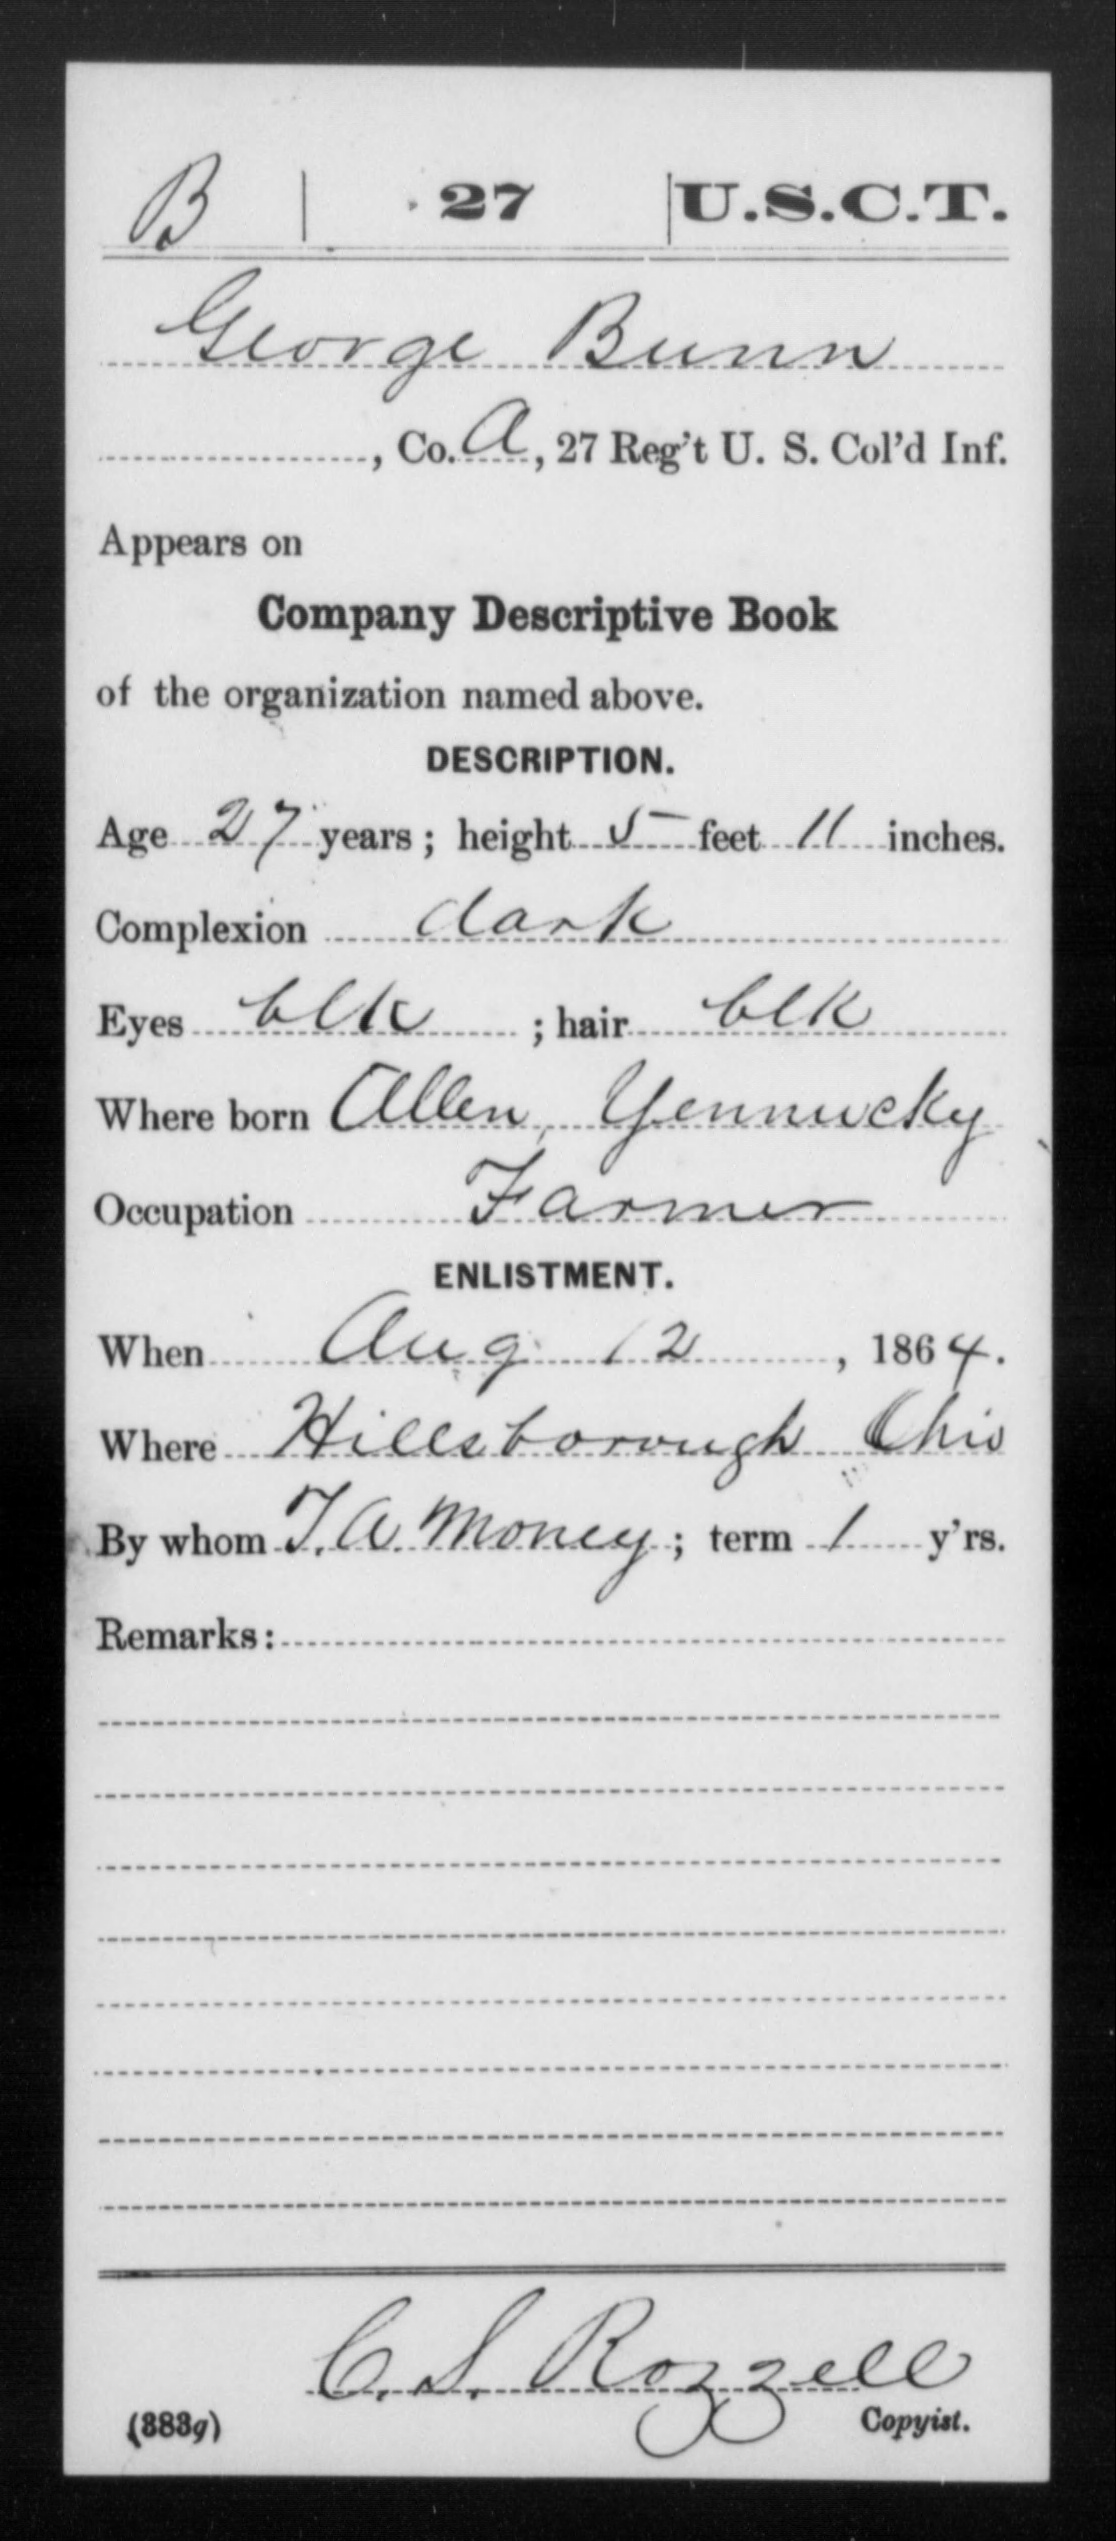 B | 27 | U.S.C.T.
George Bunn
, Co. A, 27 Reg't U. S. Col'd Inf.
Appears on
Company Descriptive Book
of the organization named above.
DESCRIPTION.
Age 27 years; height 5 feet 11 inches.
Complexion dark
Eyes blk ; hair blk
Where born Allen, Yennucky
Occupation Farmer
ENLISTMENT.
When Aug 12, 1864.
Where Hillsborough Ohio
By whom T. A. Money; term 1 y'rs.
Remarks:
C. S. Rozzell
(383g) Copyist.